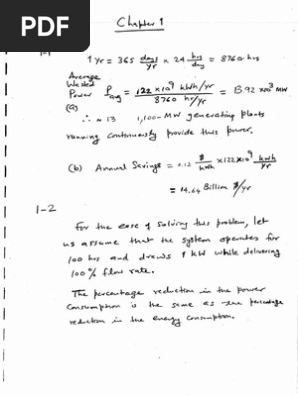 PDF
Chapter 1
1-1
1 yr = 365 days/yr × 24 hrs/day = 8760 hrs
Average
Wasted
Power P avg = 122 × 10⁹ kWh/yr / 8760 hr/yr = 13.92 × 10³ MW
(a)
∴ ≈ 13 1,100-MW generating plants
running continuously provide this power.
(b) Annual Savings = 0.12 $/kWh × 122 × 10⁹ kWh/yr
= 14.64 Billion $/yr
1-2
For the ease of solving this problem, let
us assume that the system operates for
100 hrs and draws 1 kW while delivering
100% flow rate.
The percentage reduction in the power
consumption is the same as the percentage
reduction in the energy consumption.